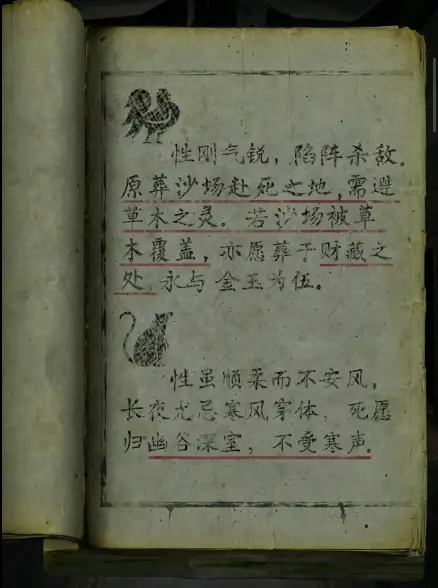 性刚气锐，陷阵杀敌。
原葬沙场赴死之地，需避
草木之灵。若沙场被草
木覆盖，亦愿葬于财藏之
处，永与金玉为伍。
性虽顺柔而不安风，
长夜尤忌寒风穿体，死愿
归幽谷深室，不受寒声。